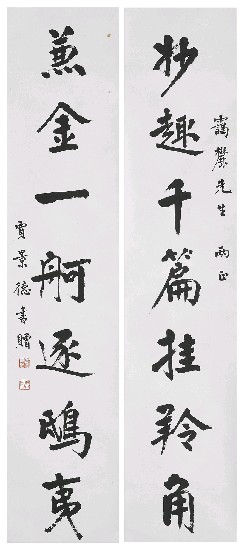 藹麓先生兩正
妙趣千篇挂羚角
兼金一舸逐鴟夷
賈景德書贈